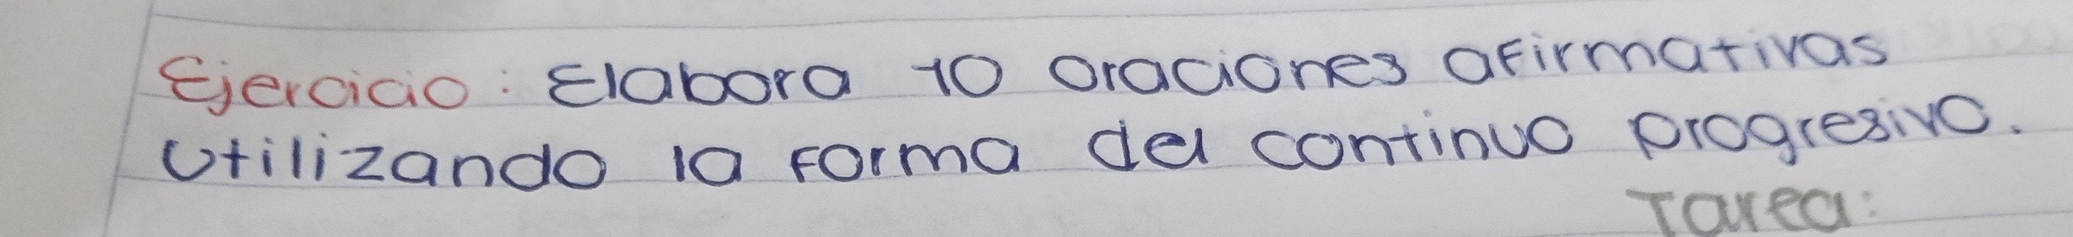 Ejercicio: Elabora 10 oraciones afirmativas
Utilizando la forma del continuo progresivo.
Tarea: